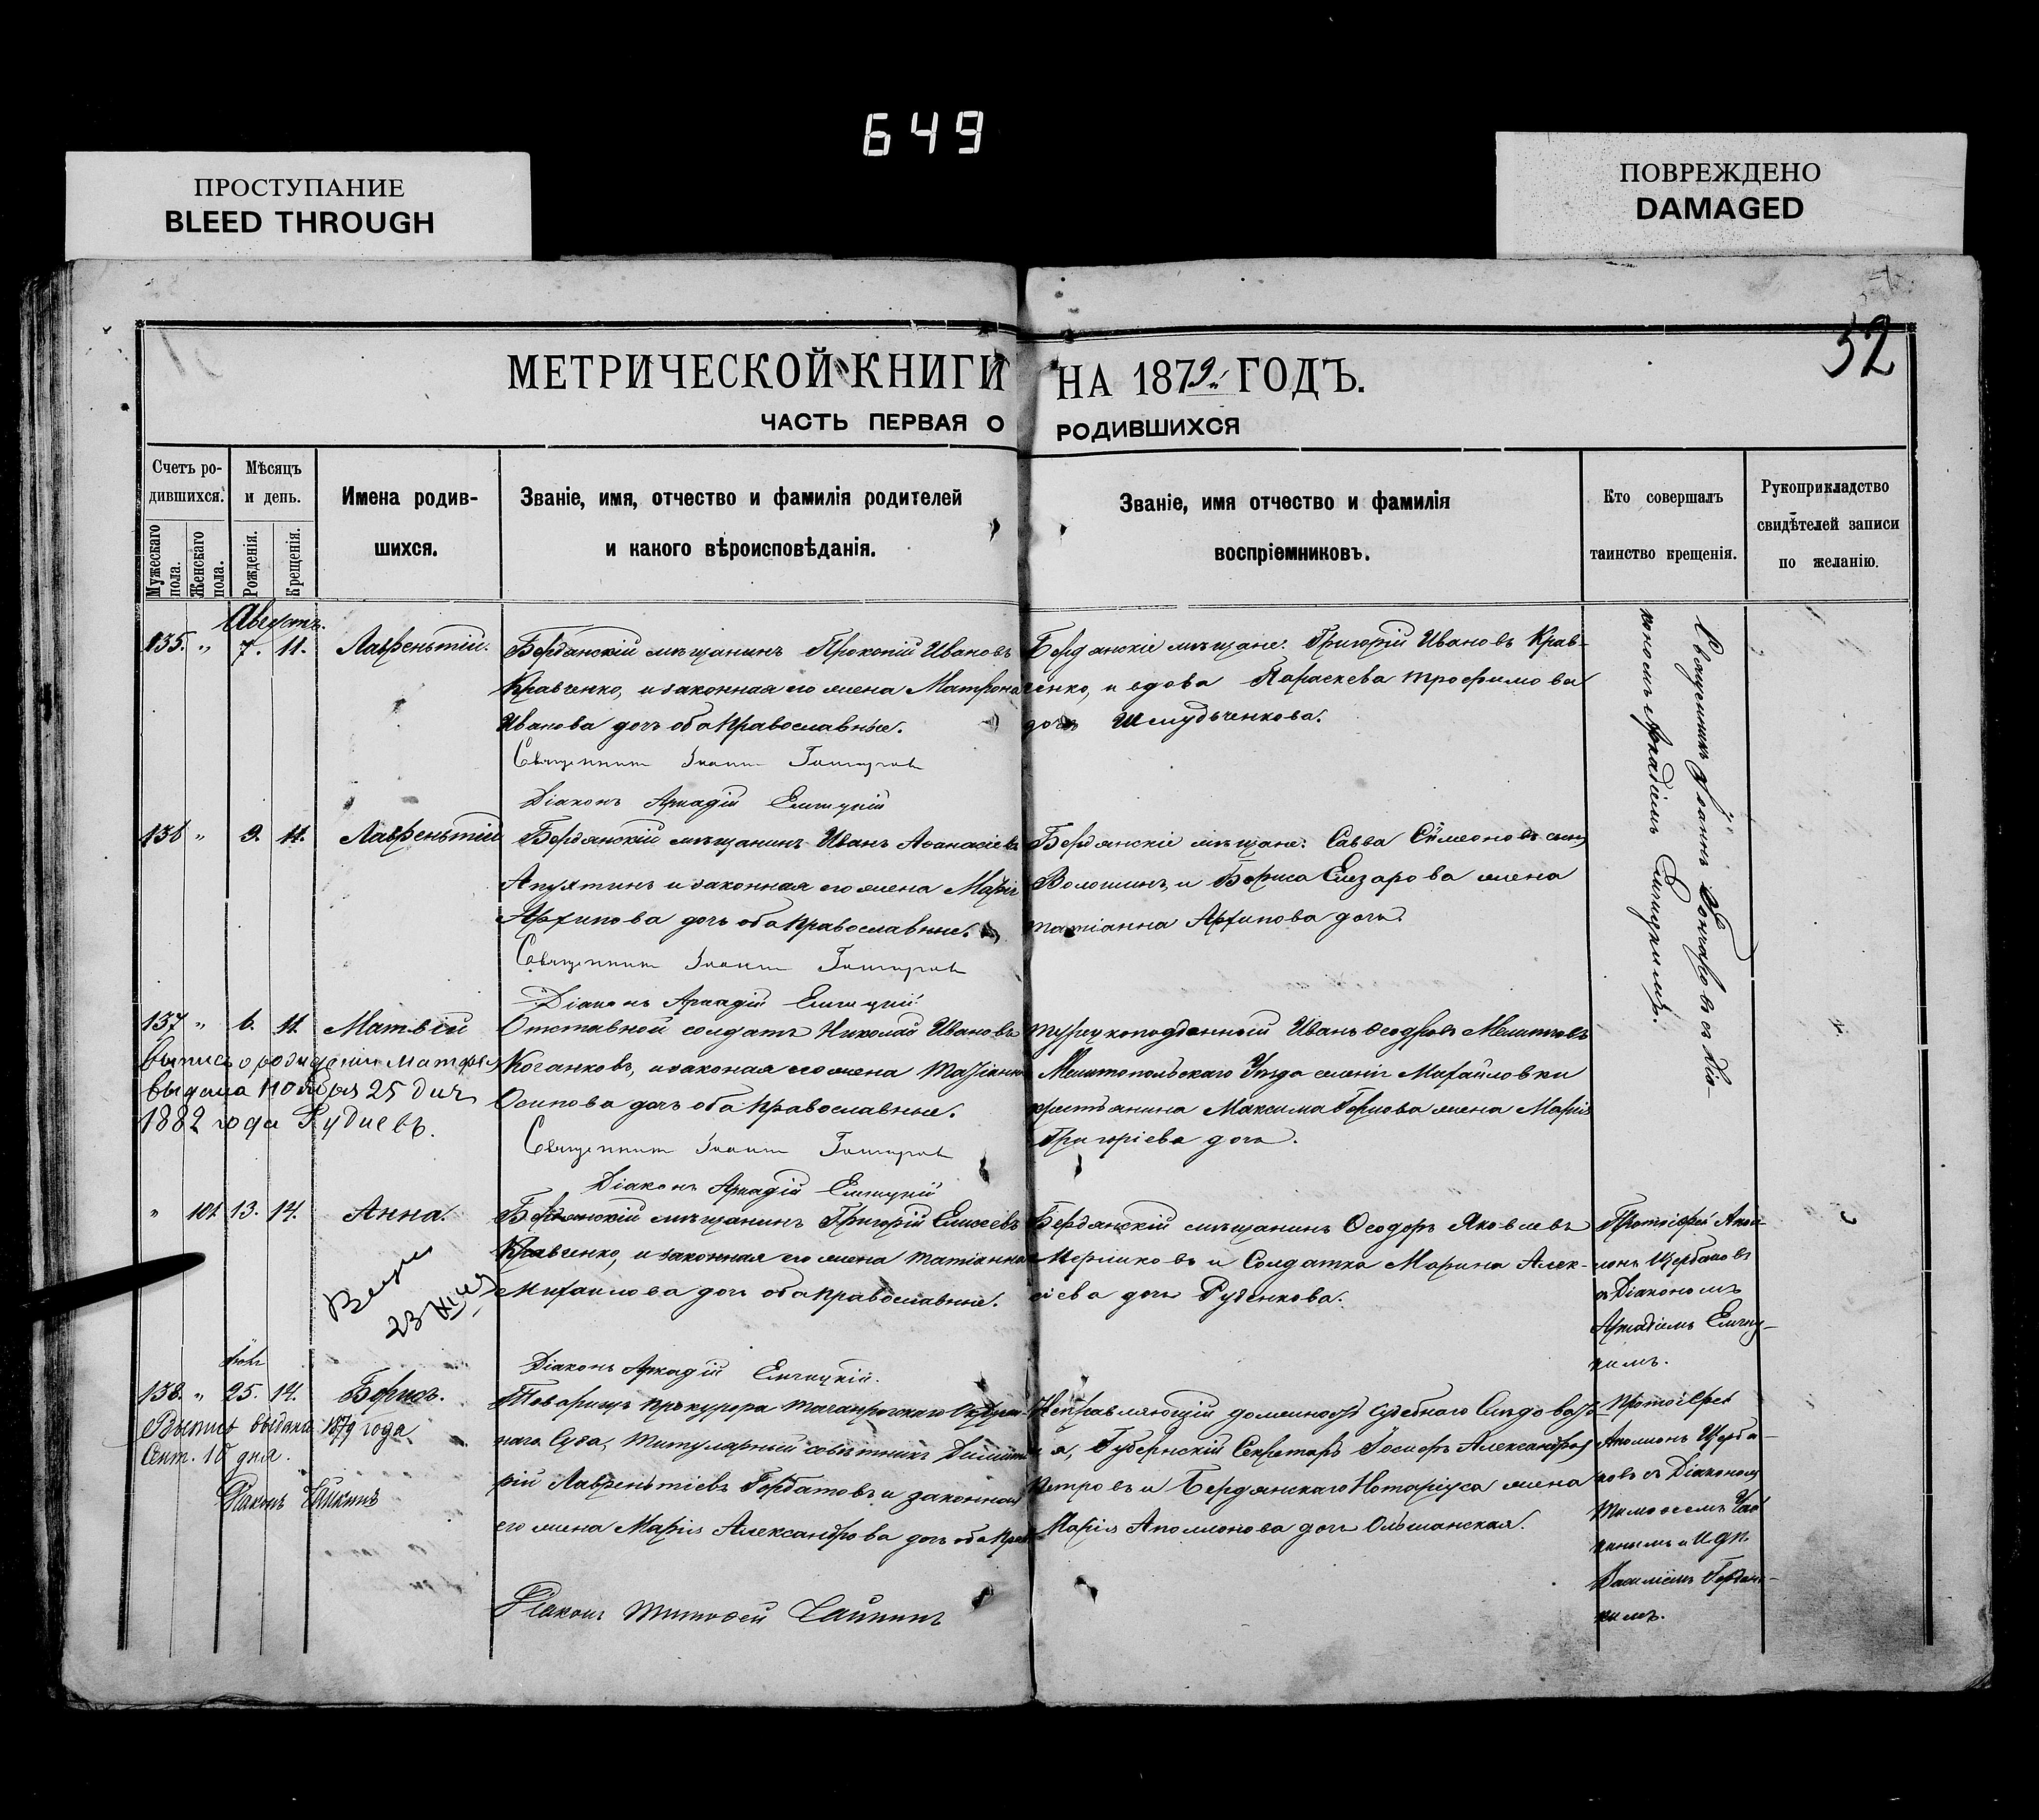 649
ПРОСТУПАНИЕ
BLEED THROUGH
ПОВРЕЖДЕНО
DAMAGED
52
МЕТРИЧЕСКОЙ КНИГИ НА 1879й ГОДЪ.
ЧАСТЬ ПЕРВАЯ О РОДИВШИХСЯ
Счетъ ро-
дившихся.
Мужескаго пола.
Женскаго пола.
Мѣсяцъ
и день.
Рожденія.
Крещенія.
Имена родив-
шихся.
Званіе, имя, отчество и фамилія родителей
и какого вѣроисповѣданія.
Званіе, имя отчество и фамилія
воспріемниковъ.
Кто совершалъ
таинство крещенія.
Рукоприкладство
свидѣтелей записи
по желанію.
Августъ.
135. " 7. 11. Лаврентій.
Бердянскій мѣщанинъ Прокопій Ивановъ
Кравченко, и законная его жена Матрона
Иванова дочь оба православные.
Священник Іоанн
Діаконъ Аркадій Енчицкій
Бердянскіе мѣщане: Григорій Ивановъ Крав-
ченко, и вдова Параскева Трофимова
дочь
Священникъ Іоаннъ съ Діа-
кономъ Аркадіемъ Енчицкимъ.
136 " 9. 11. Лаврентій
Бердянскій мѣщанинъ Иванъ Аѳанасіевъ
Апухтинъ и законная его жена Марія
Архипова дочь оба православные.
Священник Іоанн
Діаконъ Аркадій Енчицкій
Бердянскіе мѣщане: Савва Сѵмеоновъ сынъ
Волошинъ, и Бориса Елезарова жена
Татіанна Архипова дочь.
137 " 6. 11. Матвѣй
Отставной солдатъ Николай Ивановъ
Коганковъ, и законая его жена
Осипова дочь оба православные.
Священник Іоанн
Діаконъ Аркадій Енчицкій
Выпись о рожденіи
выдана Ноября 25 дня
1882 года Рудневъ.
Турецкоподданный Иванъ Ѳеодоровъ
Мелитопольскаго Уѣзда селенія Михайловки
крестьянина Максима жена Марія
Григоріева дочь.
" 101 13. 14. Анна.
Бердянскій мѣщанинъ Григорій Елисеевъ
Кравченко, и законная его жена Татіанна
Михаилова дочь оба православные.
Діаконъ Аркадій Енчицкій.
23
Бердянскій мѣщанинъ Ѳеодоръ Яковлевъ
Мерликовъ и Солдатка Марина Алек-
сіева дочь Руденкова.
Протоіерей Апол-
лонъ Щербаковъ
съ Діакономъ
Аркадіемъ Енчиц-
кимъ.
138. " 25. 14. Борисъ.
Выпись выдана 1879 года
Сент. 10 дня.
Діаконъ Чайкинъ
Товарищъ прокурора Таганрогскаго Окруж-
наго Суда, Титулярный совѣтникъ Димит-
рій Лаврентіевъ Горбатовъ и законная
его жена Марія Александрова дочь оба прав.
Діаконъ Тимоѳей Чайкинъ
Исправляющій должность Судебнаго Слѣдовате-
ля, Губернскій Секретарь Іосифъ Александровъ
Петровъ и Бердянскаго Нотаріуса жена
Марія Аполлонова дочь Ольшанская.
Протоіерей
Аполлонъ Щерба-
ковъ съ Діакономъ
Тимоѳеемъ Чай-
кинымъ и
Василіемъ